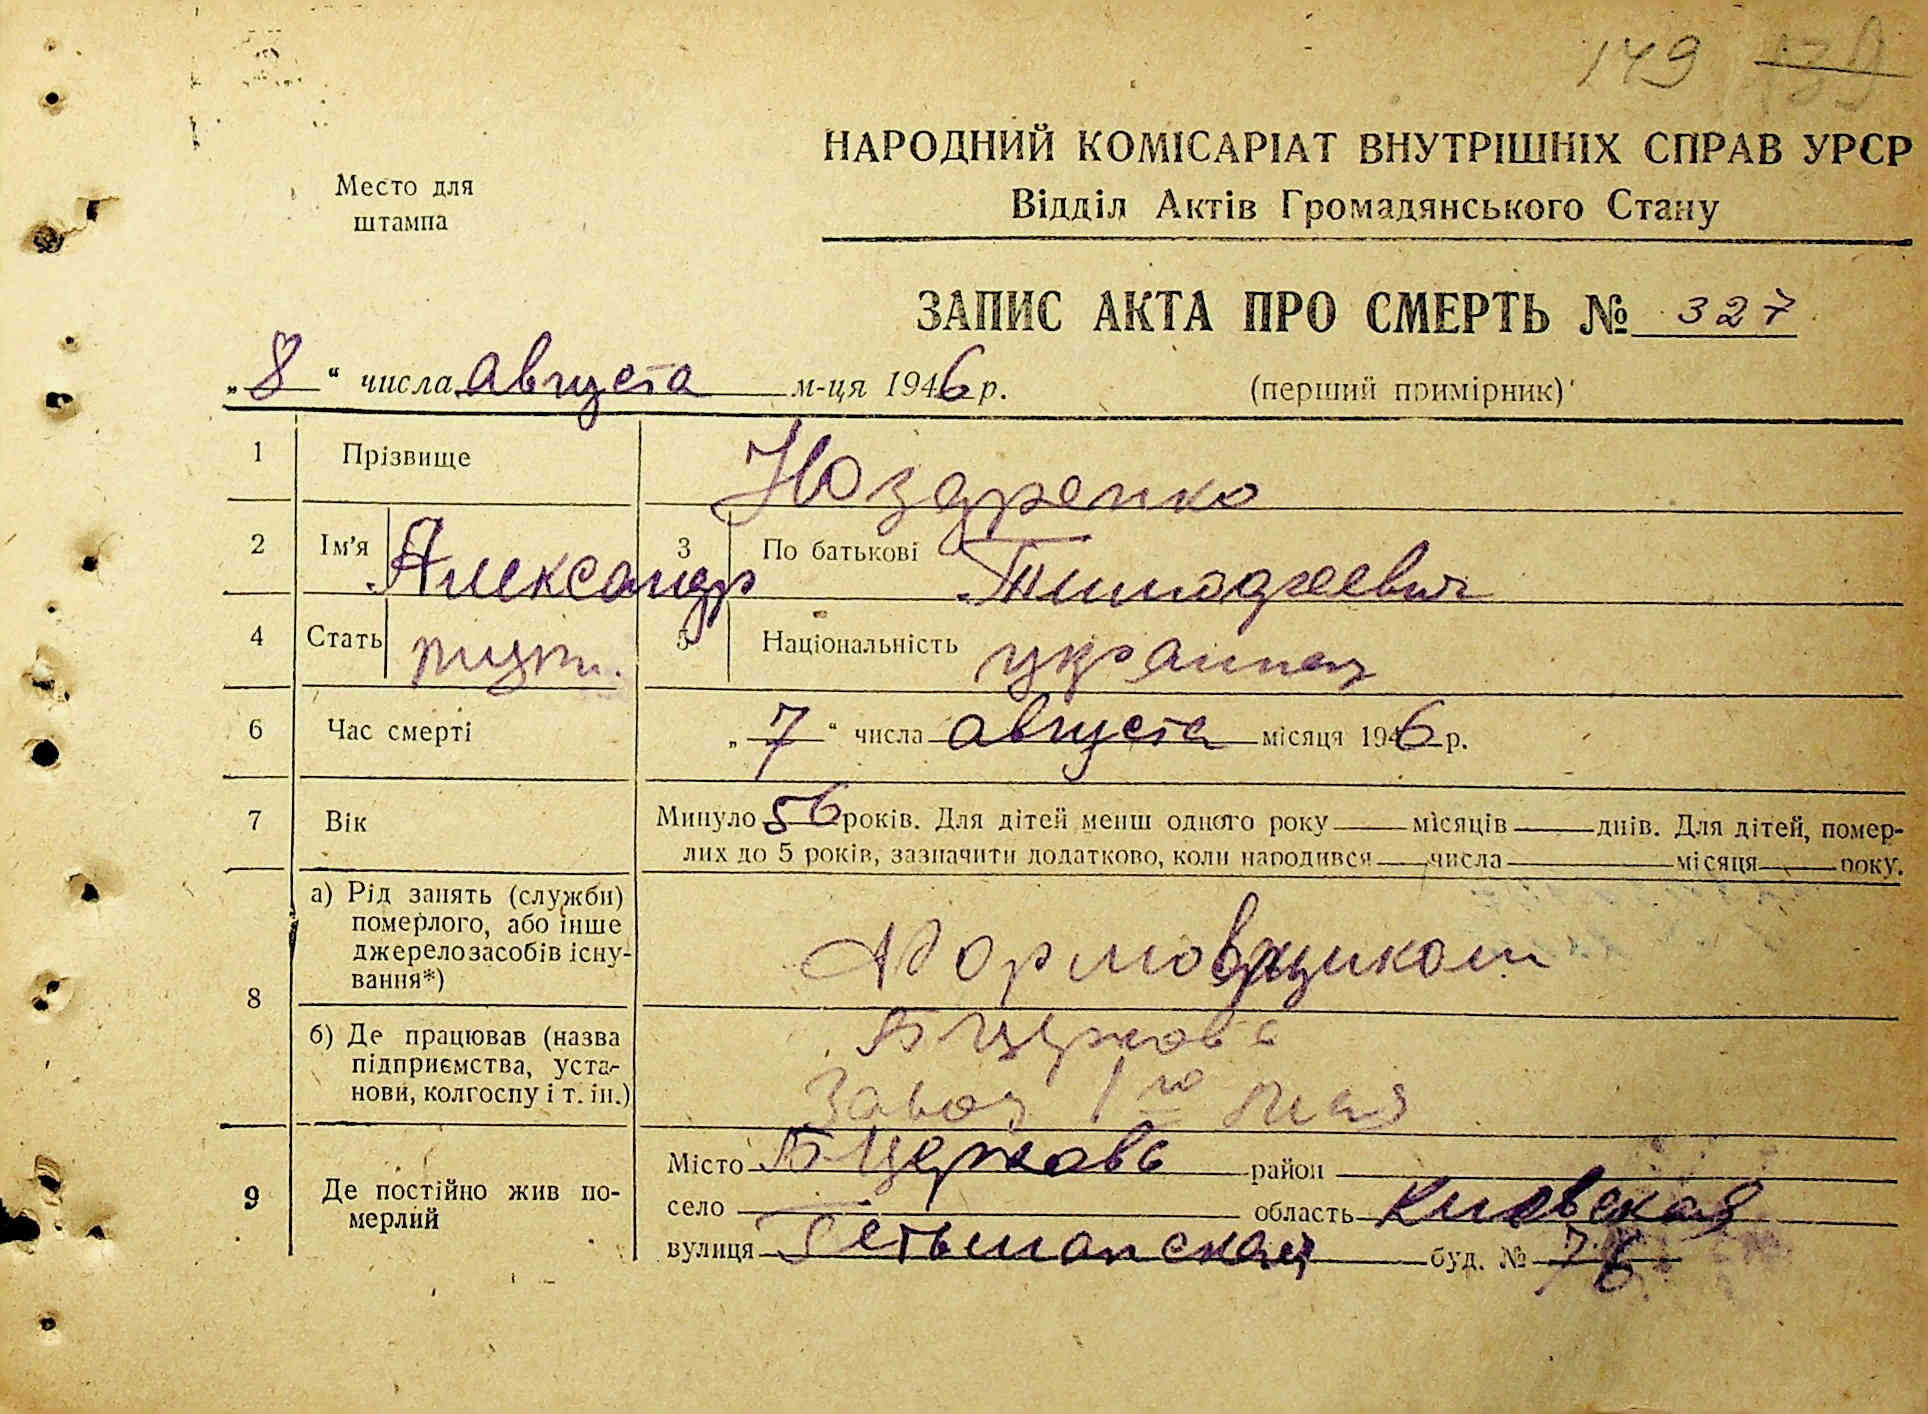 149
Место для
штампа
НАРОДНИЙ КОМІСАРІАТ ВНУТРІШНІХ СПРАВ УРСР
Відділ Актів Громадянського Стану
ЗАПИС АКТА ПРО СМЕРТЬ № 327
„8“ числа августа м-ця 1946 р. (перший примірник)
1 Прізвище Ноздренко
2 Ім'я Александр 3 По батькові Тимофеевич
4 Стать муж. 5 Національність украинец
6 Час смерті „7“ числа августа місяця 1946 р.
7 Вік Минуло 56 років. Для дітей менш одного року місяців днів. Для дітей, помер-
лих до 5 років, зазначити додатково, коли народився числа місяця року.
8 а) Рід занять (служби)
померлого, або інше
джерело засобів існу-
вання*) Формовщиком
б) Де працював (назва
підприємства, уста-
нови, колгоспу і т. ін.) Б Церковь
Завод 1го мая
9 Де постійно жив по-
мерлий
Місто Б Церковь район
село область Киевская
вулиця Гетьманская буд. № 76